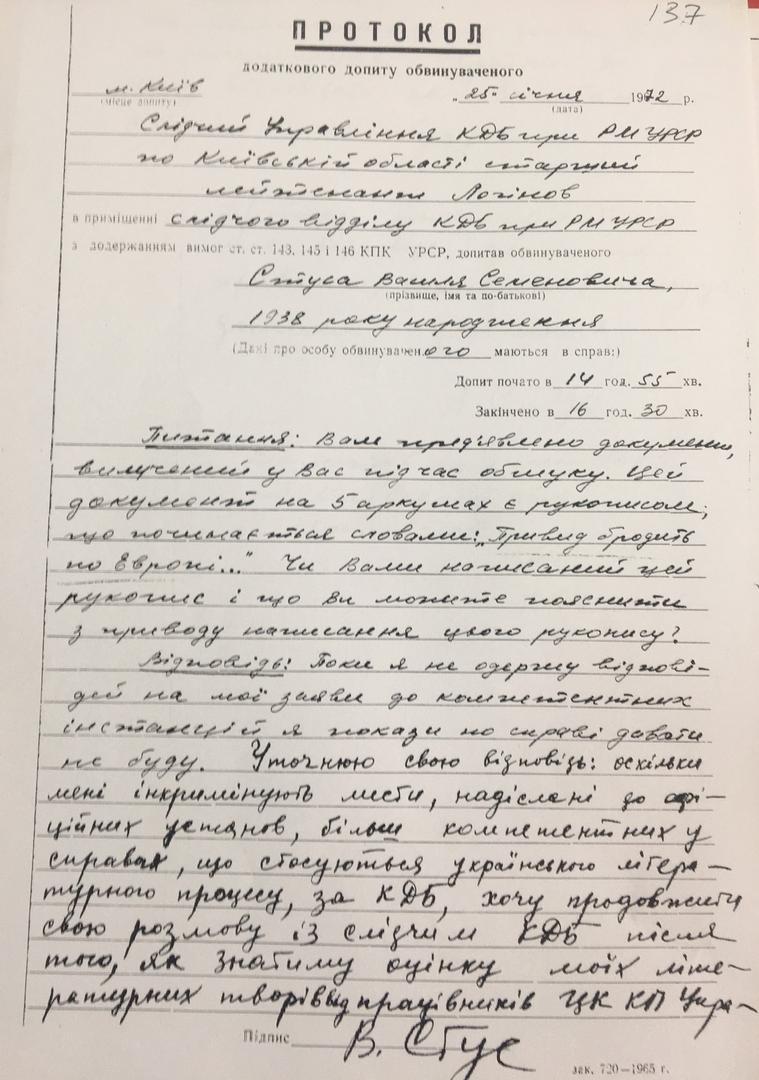 137
ПРОТОКОЛ
додаткового допиту обвинуваченого
м. Київ „25" січня 1972 р.
(місце допиту) (дата)
Слідчий Управління КДБ при РМ УРСР
по Київській області старший
лейтенант Логінов
в приміщенні слідчого відділу КДБ при РМ УРСР
з додержанням вимог ст. ст. 143, 145 і 146 КПК УРСР, допитав обвинуваченого
Стуса Василя Семеновича,
(прізвище, імя та по-батькові)
1938 року народження
(Дані про особу обвинувачен.ого маються в справі)
Допит почато в 14 год. 55 хв.
Закінчено в 16 год. 30 хв.
Питання: Вам пред'явлено документ,
вилучений у Вас під час обшуку. Цей
документ на 5 аркушах є рукописом,
що починається словами: „Привид бродить
по Європі..." Чи Вами написаний цей
рукопис і що Ви можете пояснити
з приводу написання цього рукопису?
Відповідь: Поки я не одержу відпові-
дей на мої заяви до компетентних
інстанцій я покази по справі давати
не буду. Уточнюю свою відповідь: оскільки
мені інкримінують листи, надіслані до офі-
ційних установ, більш компетентних у
справах, що стосуються українського літера-
турного процесу, за КДБ, хочу продовжити
свою розмову із слідчим КДБ після
того, як знатиму оцінку моїх літе-
ратурних творів від працівників ЦК КП Укра-
Підпис В. Стус
зак. 720—1965 г.